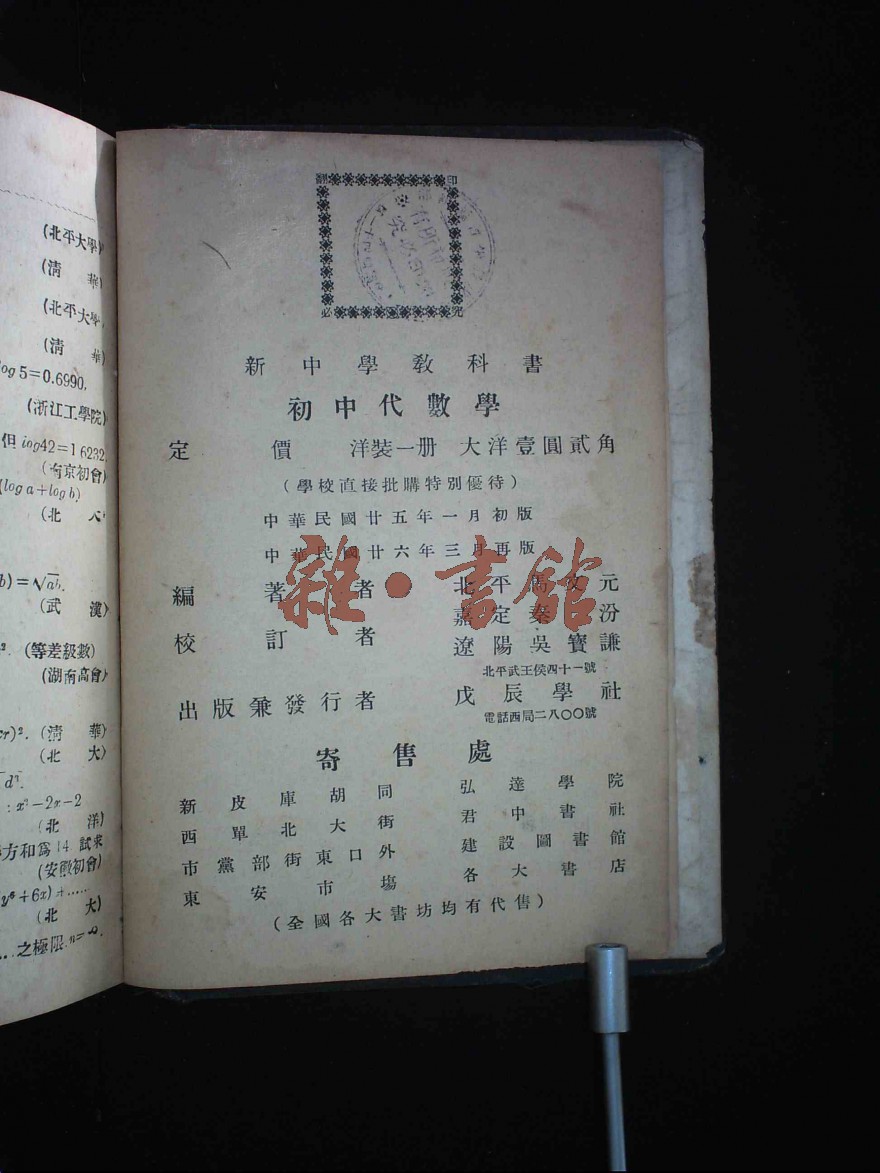 (北平大學)
(清 華)
(北平大學)
(清 華)
og 5=0.6990,
(浙江工學院)
但 log42=1 6232
(南京初會)
(log a+log b)
(北 大)
b)=√ab.
(武 漢)
². (等差級數)
(湖南高會)
cx)². (清 華)
(北 大)
: x³-2x-2
(北 洋)
方和爲 14 試求
(安徽初會)
y⁶+6x)+.....
(北 大)
...之極限.n=∞.
翻印
必究
新中學教科書
初中代數學
定價 洋裝一册 大洋壹圓貳角
(學校直接批購特別優待)
中華民國廿五年一月初版
中華民國廿六年三月再版
編著者 北平馬文元
嘉定秦汾
校訂者 遼陽吳寶謙
北平武王侯四十一號
出版兼發行者 戊辰學社
電話西局二八〇〇號
寄售處
新皮庫胡同 弘達學院
西單北大街 君中書社
市黨部街東口外 建設圖書館
東安市場 各大書店
(全國各大書坊均有代售)
雜·書館